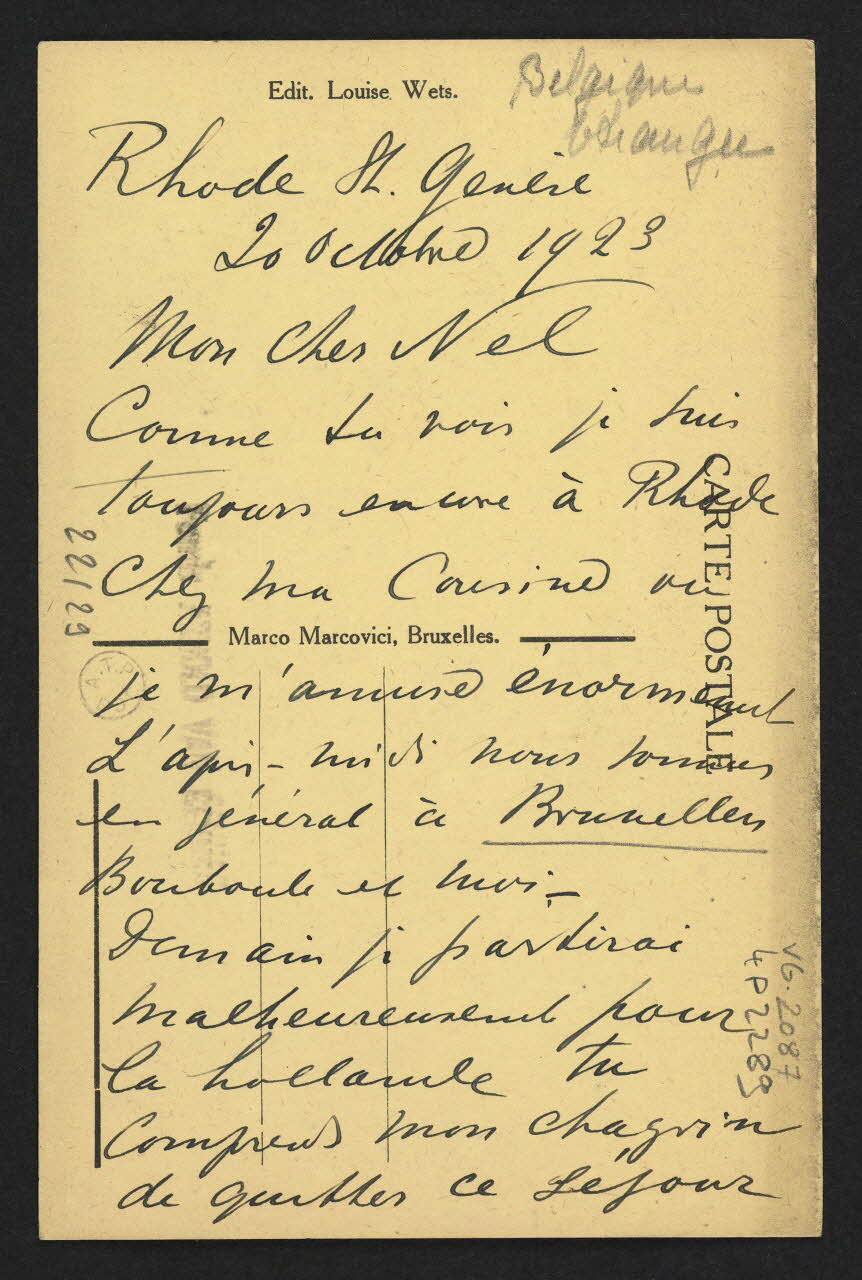 Edit. Louise Wets.
Belgique
Etranger
Rhode St. Genèse
20 Octobre 1923
Mon cher Nel
Comme tu vois je suis
toujours encore à Rhode
Chez ma Cousine ou
CARTE POSTALE
22/29
Marco Marcovici, Bruxelles.
A.T.P.
je m'amuse énormement
L'après-midi nous sommes
en général à Bruxelles
Bouboule et moi -
Demain je partirai
malheureusement pour
la hollande tu
Comprends mon chagrin
de quitter ce séjour
VG. 2087
4P2289